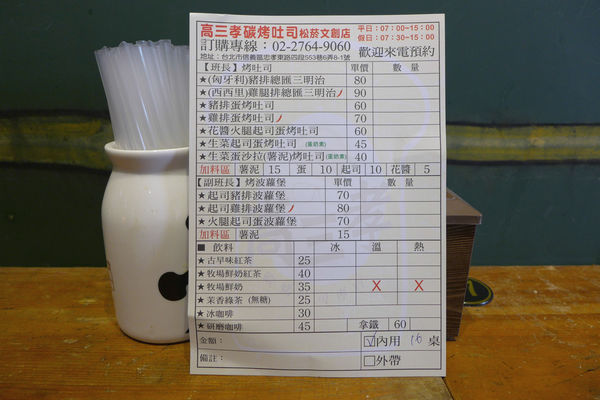 高三孝碳烤吐司松菸文創店 平日：07：00~15：00
假日：07：30~15：00
訂購專線：02-2764-9060 歡迎來電預約
地址：台北市信義區忠孝東路四段553巷6弄8-1號
【班長】烤吐司 單價 數量
★(匈牙利)豬排總匯三明治 80
★(西西里)雞腿排總匯三明治 90
★豬排蛋烤吐司 60
★雞排蛋烤吐司 70
★花醬火腿起司蛋烤吐司 60
★生菜起司蛋烤吐司 (蛋奶素) 45
★生菜蛋沙拉(薯泥)烤吐司(蛋奶素) 40
加料區 薯泥 15 蛋 10 起司 10 花醬 5
【副班長】烤波蘿堡 單價 數量
★起司豬排波蘿堡 70
★起司雞排波蘿堡 80
★火腿起司蛋波蘿堡 70
加料區 薯泥 15
■ 飲料 冰 溫 熱
★古早味紅茶 25
★牧場鮮奶紅茶 40
★牧場鮮奶 35 X X
★茉香綠茶(無糖) 25
★冰咖啡 30
★研磨咖啡 45 拿鐵 60
金額： ☑內用 16 桌
備註： □外帶